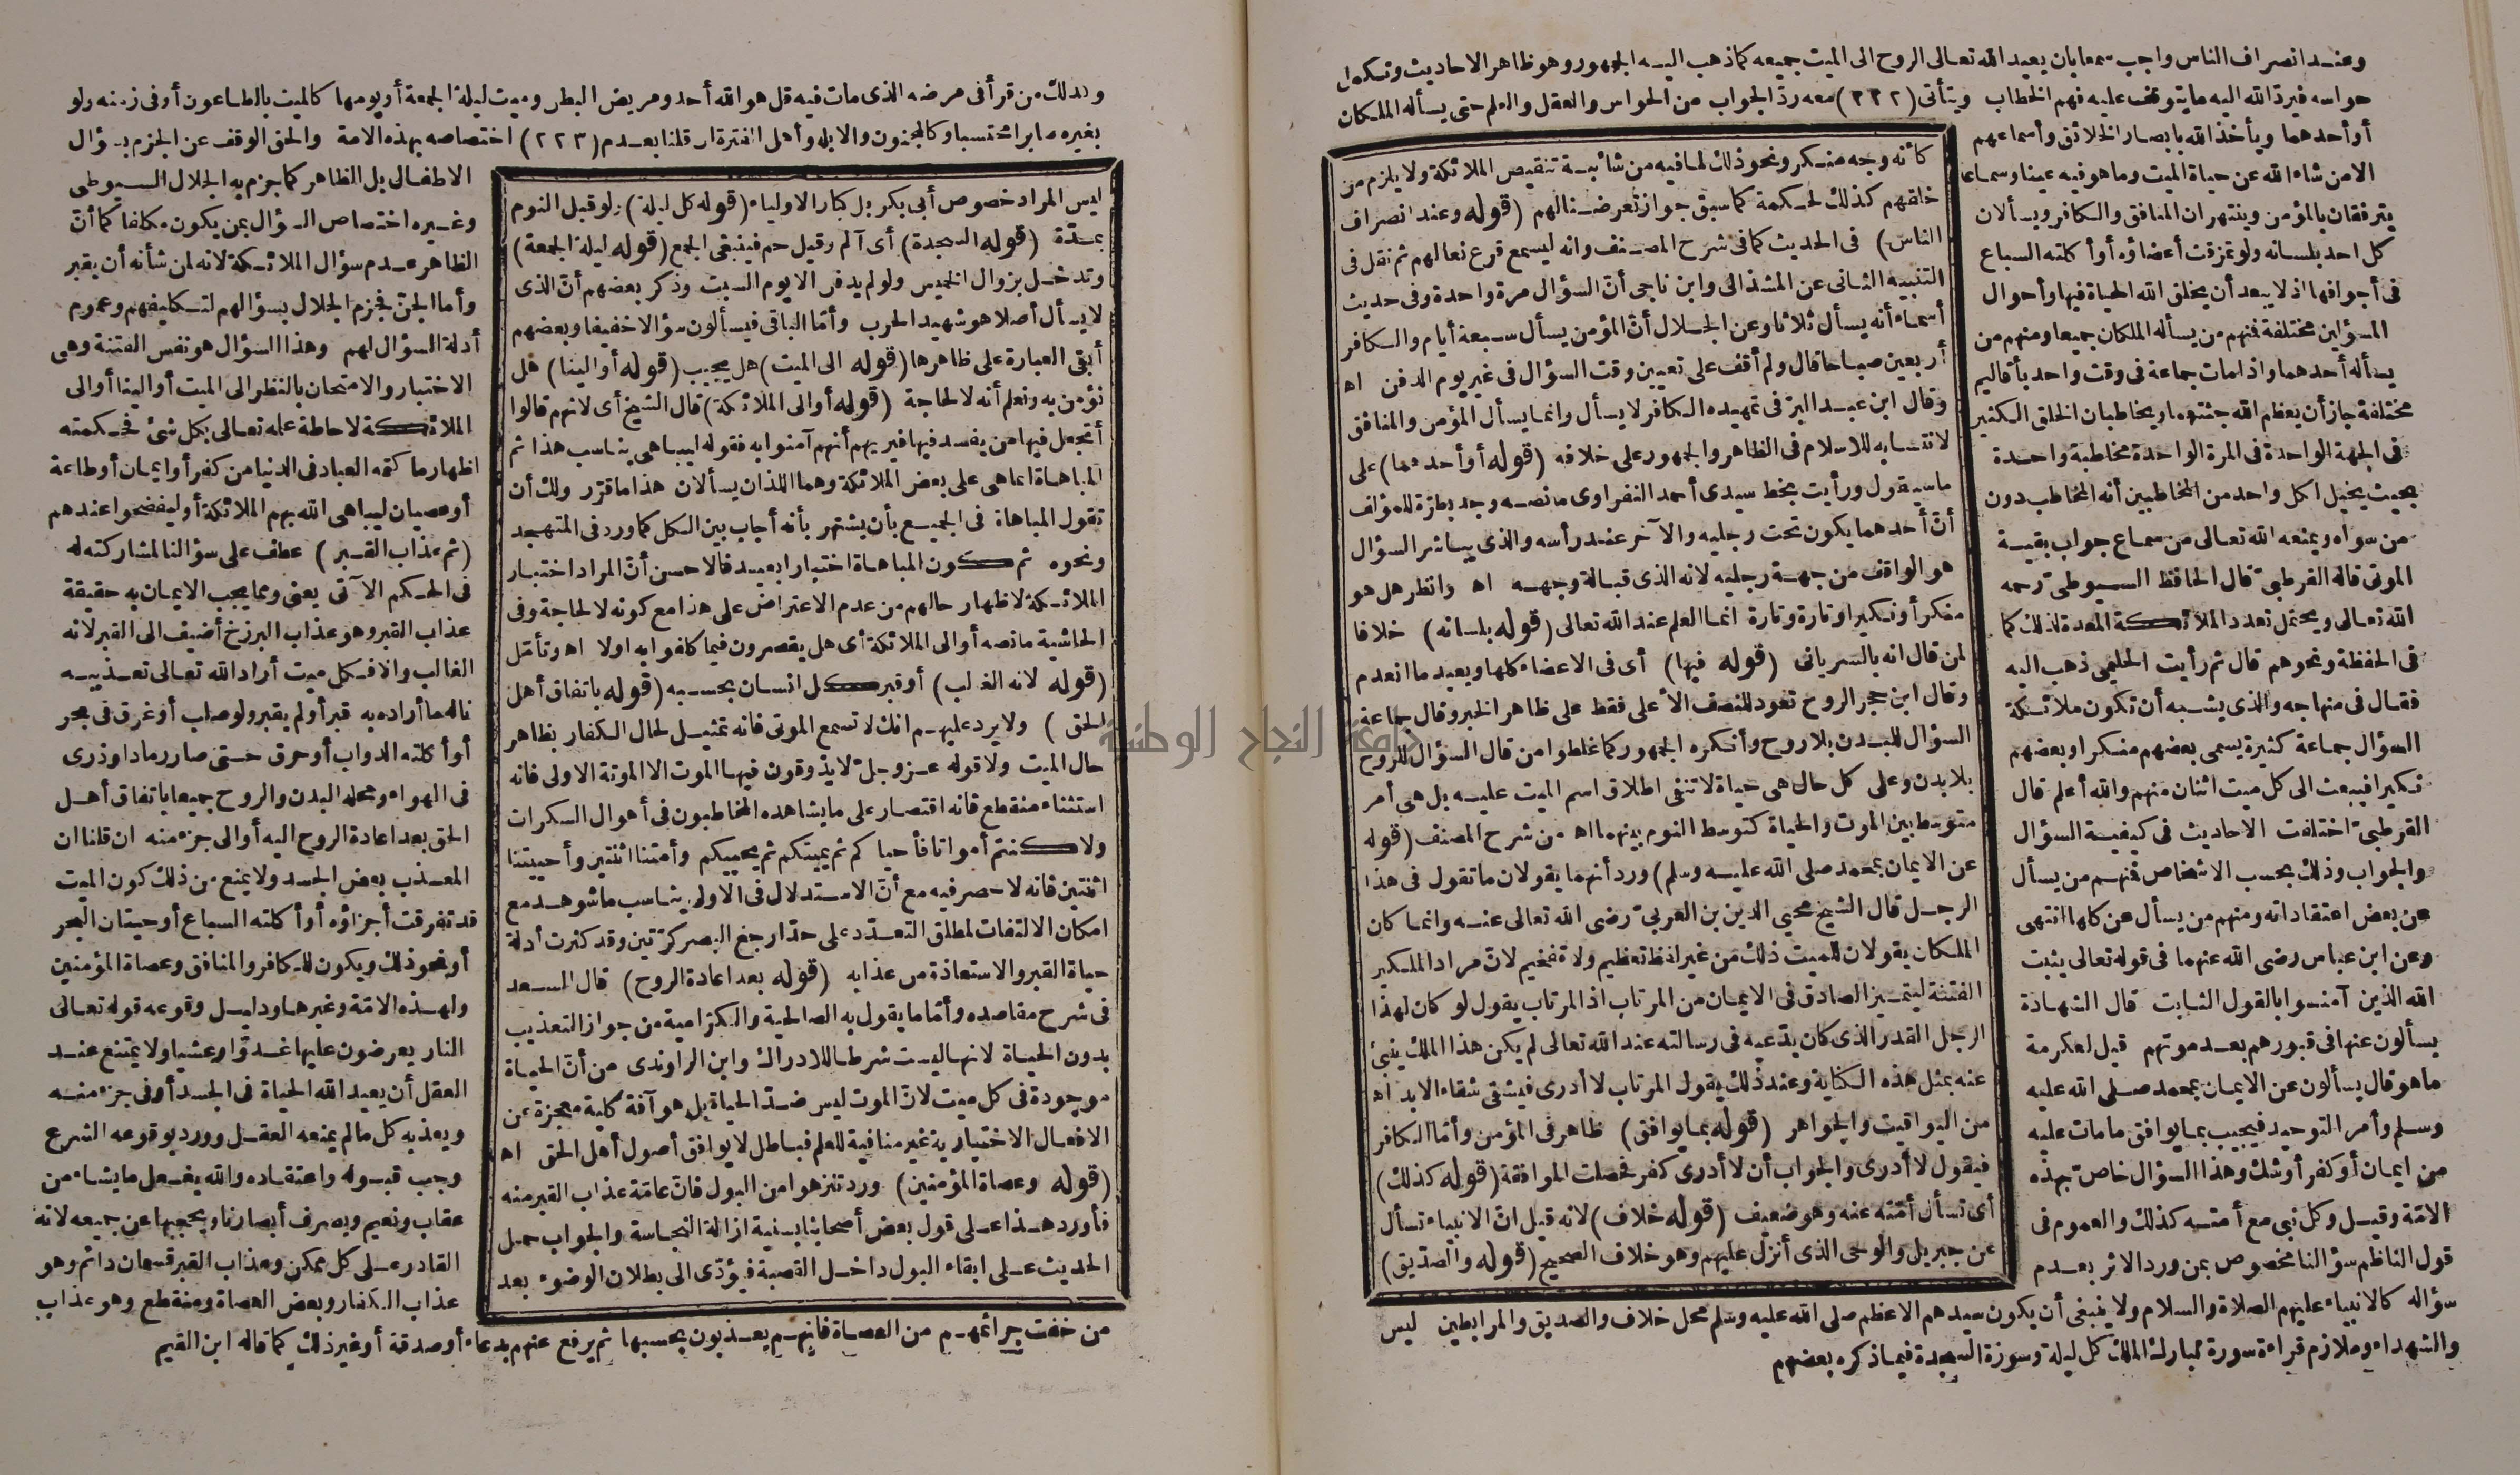 وعند انصراف الناس واجب سمعا بان يعيد الله تعالى الروح الى الميت جميعه كما ذهب اليه الجمهور وهو ظاهر الاحاديث وتكمل
حواسه فيرد الله اليه ما يتوقف عليه فهم الخطاب ويتأتى (٢٢٢) معه رد الجواب من الحواس والعقل والعلم حتى يسأله الملكان
أو أحدهما ويأخذ الله بابصار الخلائق وأسماعهم
الا من شاء الله عن حياة الميت وما هو فيه عينا وسماعا
يترفقان بالمؤمن وينتهران المنافق والكافر ويسألان
كل احد بلسانه ولو تمزقت أعضاؤه أو أكلته السباع
فى أجوافها اذ لا يبعد أن يخلق الله الحياة فيها وأحوال
المسؤلين مختلفة فمنهم من يسأله الملكان جميعا ومنهم من
يسأله أحدهما واذا مات جماعة فى وقت واحد بأقاليم
مختلفة جاز أن يعظم الله جثتهما ويخاطبان الخلق الكثير
فى الجهة الواحدة فى المرة الواحدة مخاطبة واحدة
بحيث يخيل لكل واحد من المخاطبين أنه المخاطب دون
من سواه ويمنعه الله تعالى من سماع جواب بقية
الموتى قاله القرطبى قال الحافظ السيوطى رحمه
الله تعالى ويحتمل تعدد الملائكة المعدة لذلك كما
فى الحفظة ونحوهم قال ثم رأيت الحليمى ذهب اليه
فقال فى منهاجه والذى يشبه أن تكون ملائكة
السؤال جماعة كثيرة يسمى بعضهم منكرا وبعضهم
نكيرا فيبعث الى كل ميت اثنان منهم والله أعلم قال
القرطبى اختلفت الاحاديث فى كيفية السؤال
والجواب وذلك بحسب الاشخاص فمنهم من يسأل
عن بعض اعتقاداته ومنهم من يسأل عن كلها انتهى
وعن ابن عباس رضى الله عنهما فى قوله تعالى يثبت
الله الذين آمنوا بالقول الثابت قال الشهادة
يسألون عنها فى قبورهم بعد موتهم قيل لعكرمة
ما هو قال يسألون عن الايمان بمحمد صلى الله عليه
وسلم وأمر التوحيد فيجيب بما يوافق ما مات عليه
من ايمان أو كفر أو شك وهذا السؤال خاص بهذه
الامة وقيل وكل نبى مع أمته كذلك والعموم فى
قول الناظم سؤالنا مخصوص بمن ورد الاثر بعدم
سؤاله كالانبياء عليهم الصلاة والسلام ولا ينبغى أن يكون سيدهم الاعظم صلى الله عليه وسلم محل خلاف والصديق والمرابطين ليس
والشهداء وملازم قراءة سورة تبارك الملك كل ليلة وسورة السجدة فيما ذكره بعضهم
كأنه وجه منكر ونحو ذلك لما فيه من شائبة تنقيص الملائكة ولا يلزم من
خلقهم كذلك لحكمة كما سبق جواز تعرضنا لهم (قوله وعند انصراف
الناس) فى الحديث كما فى شرح المصنف وانه ليسمع قرع نعالهم ثم نقل فى
التنبيه الثانى عن المشذالى وابن ناجى أن السؤال مرة واحدة وفى حديث
أسماء أنه يسأل ثلاثا وعن الجلال أن المؤمن يسأل سبعة أيام والكافر
أربعين صباحا قال ولم أقف على تعيين وقت السؤال فى غير يوم الدفن اه
وقال ابن عبد البر فى تمهيده الكافر لا يسأل وانما يسأل المؤمن والمنافق
لانتسابه للاسلام فى الظاهر والجمهور على خلافه (قوله أو أحدهما) على
ما سيقول ورأيت بخط سيدى أحمد النفراوى ما نصه وجد بطرة للمؤلف
أن أحدهما يكون تحت رجليه والآخر عند رأسه والذى يباشر السؤال
هو الواقف من جهة رجليه لانه الذى قبالة وجهه اه وانظر هل هو
منكر أو نكير او تارة وتارة انما العلم عند الله تعالى (قوله بلسانه) خلافا
لمن قال انه بالسريانى (قوله فيها) أى فى الاعضاء كلها ويعيد ما انعدم
وقال ابن حجر الروح تعود للنصف الأعلى فقط على ظاهر الخبر وقال جماعة
السؤال للبدن بلا روح وأنكره الجمهور كما غلطوا من قال السؤال للروح
بلا بدن وعلى كل حال هى حياة لا تنفى اطلاق اسم الميت عليه بل هى أمر
متوسط بين الموت والحياة كتوسط النوم بينهما اه من شرح المصنف (قوله
عن الايمان بمحمد صلى الله عليه وسلم) ورد أنهما يقولان ما تقول فى هذا
الرجل قال الشيخ محيي الدين بن العربى رضى الله تعالى عنه وانما كان
الملكان يقولان للميت ذلك من غير لفظ تعظيم ولا تفخيم لان مراد الملكين
الفتنة ليتميز الصادق فى الايمان من المرتاب اذ المرتاب يقول لو كان لهذا
الرجل القدر الذى كان يدعيه فى رسالته عند الله تعالى لم يكن هذا الملك ينبئ
عنه بمثل هذه الكناية وعند ذلك يقول المرتاب لا أدرى فيشقى شقاء الابد اه
من اليواقيت والجواهر (قوله بما يوافق) ظاهر فى المؤمن وأما الكافر
فيقول لا أدرى والجواب أن لا أدرى كفر فحصلت الموافقة (قوله كذلك)
أى تسأل أمته عنه وهو ضعيف (قوله خلاف) لانه قيل ان الانبياء تسأل
عن جبريل والوحى الذى أنزل عليهم وهو خلاف الصحيح (قوله والصديق)
وكذلك من قرأ فى مرضه الذى مات فيه قل هو الله أحد ومريض البطن وميت ليلة الجمعة أو يومها كالميت بالطاعون أو فى زمنه ولو
بغيره صابرا محتسبا وكالمجنون والابله وأهل الفترة ان قلنا بعدم (٢٢٣) اختصاصه بهذه الامة والحق الوقف عن الجزم بسؤال
الاطفال بل الظاهر كما جزم به الجلال السيوطى
وغيره اختصاص السؤال بمن يكون مكلفا كما أن
الظاهر عدم سؤال الملائكة لانه لمن شأنه أن يقبر
وأما الجن فجزم الجلال بسؤالهم لتكليفهم وعموم
أدلة السؤال لهم وهذا السؤال هو نفس الفتنة وهى
الاختبار والامتحان بالنظر الى الميت أو الينا أو الى
الملائكة لاحاطة علمه تعالى بكل شئ فحكمته
اظهار ما كتمه العباد فى الدنيا من كفر أو ايمان أو طاعة
أو عصيان ليباهى الله بهم الملائكة أو ليفضحوا عندهم
(ثم عذاب القبر) عطف على سؤالنا لمشاركته له
فى الحكم الآتى يعنى ومما يجب الايمان به حقيقة
عذاب القبر وهو عذاب البرزخ أضيف الى القبر لانه
الغالب والا فكل ميت أراد الله تعالى تعذيبه
ناله ما أراده به قبر أو لم يقبر ولو صلب أو غرق فى بحر
أو أكلته الدواب أو حرق حتى صار رمادا وذرى
فى الهواء ومحله البدن والروح جميعا باتفاق أهل
الحق بعد اعادة الروح اليه أو الى جزء منه ان قلنا ان
المعذب بعض الجسد ولا يمنع من ذلك كون الميت
قد تفرقت أجزاؤه أو أكلته السباع أو حيتان البحر
أو نحو ذلك ويكون للكافر والمنافق وعصاة المؤمنين
ولهذه الامة وغيرها ودليل وقوعه قوله تعالى
النار يعرضون عليها غدوّا وعشيا ولا يمتنع عند
العقل أن يعيد الله الحياة فى الجسد أو فى جزء منه
ويعذبه كل ما لم يمنعه العقل وورد بوقوعه الشرع
وجب قبوله واعتقاده والله يفعل ما يشاء من
عقاب ونعيم ويصرف أبصارنا ويحجبها عن جميعه لانه
القادر على كل ممكن وعذاب القبر قسمان دائم وهو
عذاب الكفار وبعض العصاة ومنقطع وهو عذاب
من خفت جرائمهم من العصاة فانهم يعذبون بحسبها ثم يرفع عنهم بدعاء أو صدقة أو غير ذلك كما قاله ابن القيم
ليس المراد خصوص أبى بكر بل كبار الاولياء (قوله كل ليلة) ولو قبل النوم
بمدة (قوله السجدة) أى آلم وقيل حم فينبغى الجمع (قوله ليلة الجمعة)
وتدخل بزوال الخميس ولو لم يدفن الا يوم السبت وذكر بعضهم أن الذى
لا يسأل أصلا هو شهيد الحرب وأما الباقى فيسألون سؤالا خفيفا وبعضهم
أبقى العبارة على ظاهرها (قوله الى الميت) هل يجيب (قوله أو الينا) هل
نؤمن به ونعلم أنه لا لحاجة (قوله أو الى الملائكة) قال الشيخ أى لانهم قالوا
أتجعل فيها من يفسد فيها فيريهم أنهم آمنوا به فقوله ليباهى يناسب هذا ثم
المباهاة انما هى على بعض الملائكة وهما اللذان يسألان هذا ما قرر ولك أن
تقول المباهاة فى الجميع بأن يشتهر بأنه أجاب بين الكل كما ورد فى المتهجد
ونحوه ثم كون المباهاة اختبارا بعيد فالاحسن أن المراد اختبار
الملائكة لاظهار حالهم من عدم الاعتراض على هذا مع كونه لا لحاجة وفى
الحاشية ما نصه أو الى الملائكة أى هل يقصرون فيما كلفوا به اولا اه وتأمل
(قوله لانه الغالب) أو قبر كل انسان بحسبه (قوله باتفاق أهل
الحق) ولا يرد عليهم انك لا تسمع الموتى فانه تمثيل لحال الكفار بظاهر
حال الميت ولا قوله عز وجل لا يذوقون فيها الموت الا الموتة الاولى فانه
استثناء منقطع فانه اقتصار على ما يشاهده المخاطبون فى أهوال السكرات
ولا كنتم أمواتا فأحياكم ثم يميتكم ثم يحييكم وأمتنا اثنتين وأحييتنا
اثنتين فانه لا حصر فيه مع أن الاستدلال فى الاولى يناسب ما شوهد مع
امكان الالتفات لمطلق التعدد على حد ارجع البصر كرتين وقد كثرت أدلة
حياة القبر والاستعاذة من عذابه (قوله بعد اعادة الروح) قال السعد
فى شرح مقاصده وأما ما يقول به الصالحية والكرامية من جواز التعذيب
بدون الحياة لانها ليست شرطا للادراك وابن الراوندى من أن الحياة
موجودة فى كل ميت لان الموت ليس ضد الحياة بل هو آفة كلية معجزة عن
الافعال الاختيارية غير منافية للعلم فباطل لا يوافق أصول أهل الحق اه
(قوله وعصاة المؤمنين) ورد تنزهوا من البول فان عامة عذاب القبر منه
فأورد هذا على قول بعض أصحابنا بسنية ازالة النجاسة والجواب حمل
الحديث على ابقاء البول داخل القصبة فيؤدى الى بطلان الوضوء بعد
جامعة النجاح الوطنية